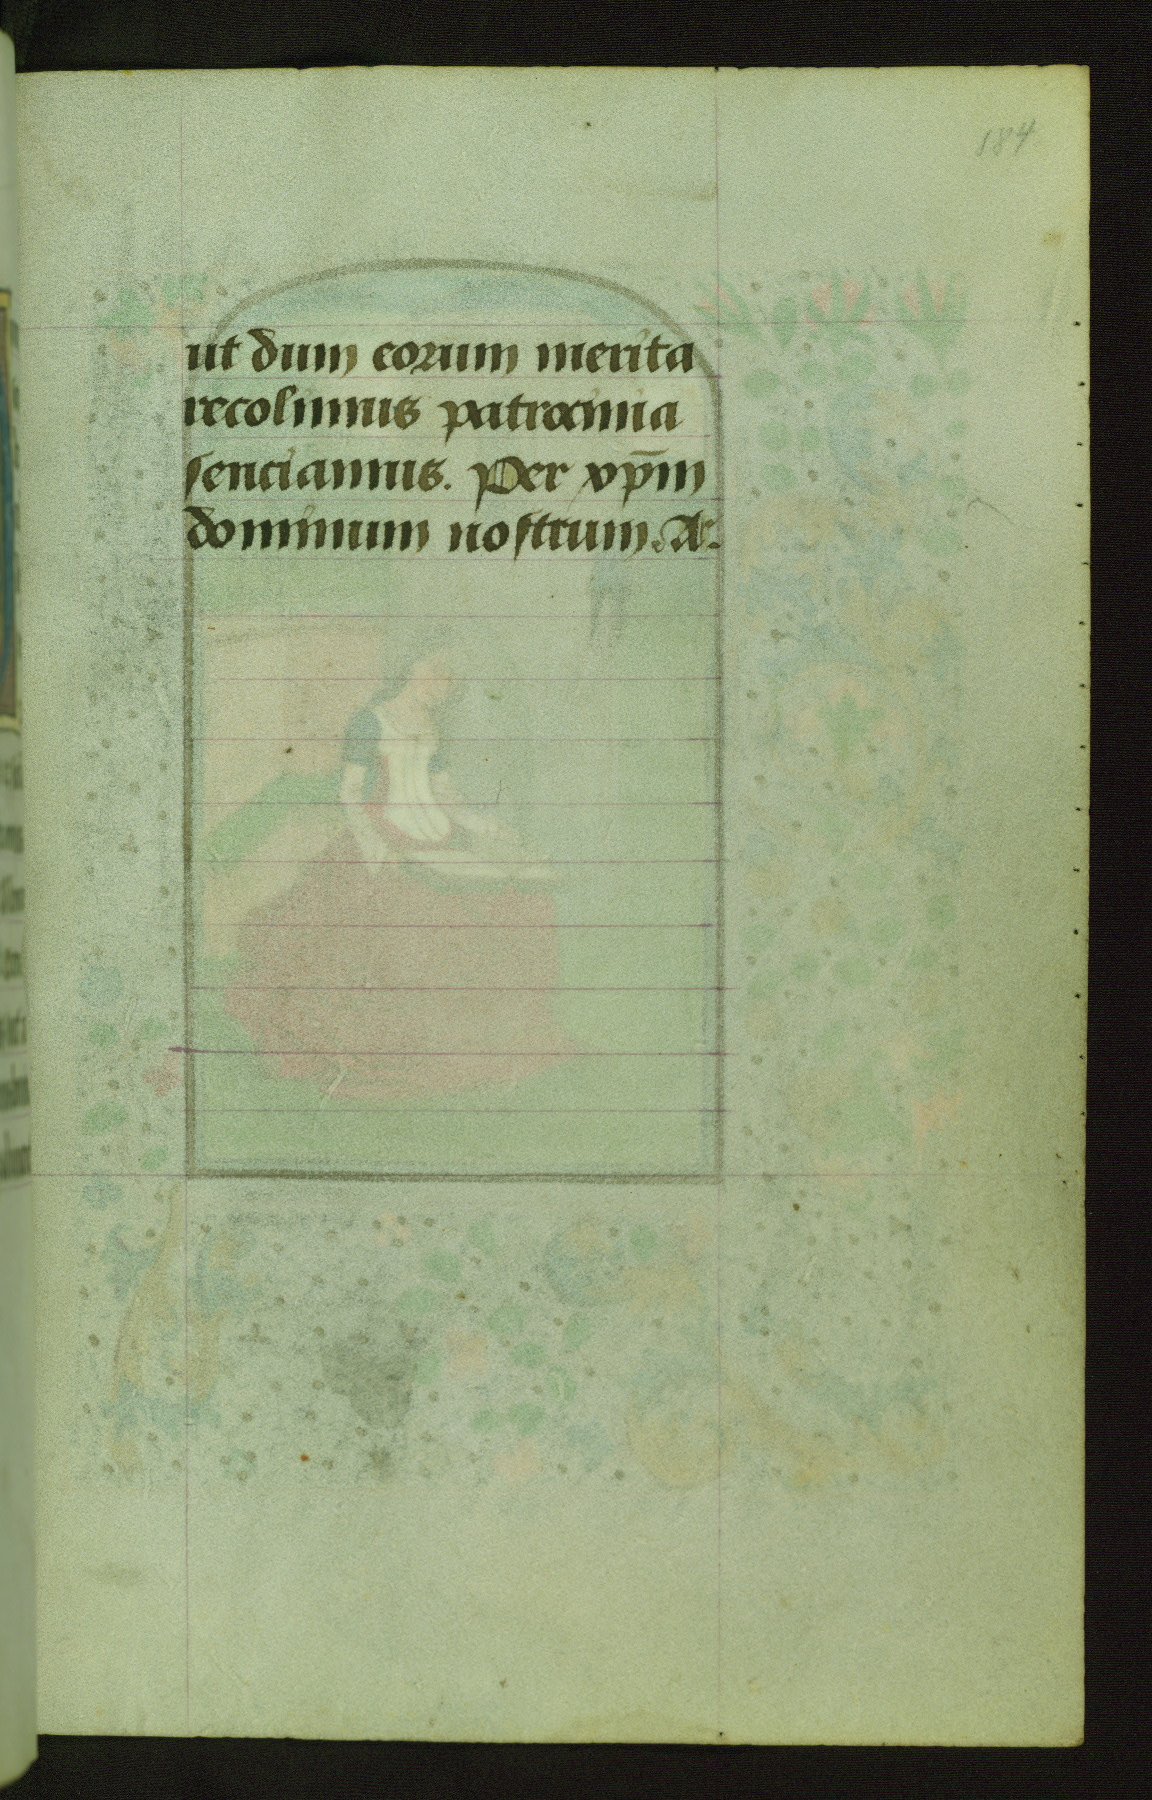 184
ut dum eorum merita
recolimus patrocinia
senciamus. Per xp̄m
dominum nostrum. A.